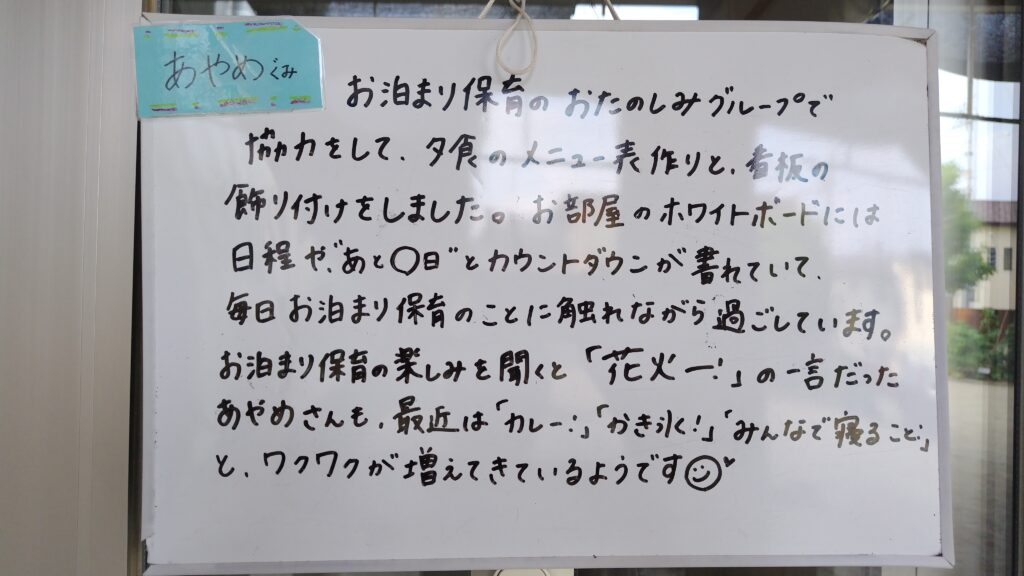 あやめぐみ
お泊まり保育のおたのしみグループで
協力をして、夕食のメニュー表作りと、看板の
飾り付けをしました。お部屋のホワイトボードには
日程や、"あと〇日"とカウントダウンが書れていて、
毎日お泊まり保育のことに触れながら過ごしています。
お泊まり保育の楽しみを聞くと「花火ー!」の一言だった
あやめさんも、最近は「カレー!」「かき氷!」「みんなで寝ること!」
と、ワクワクが増えてきているようです